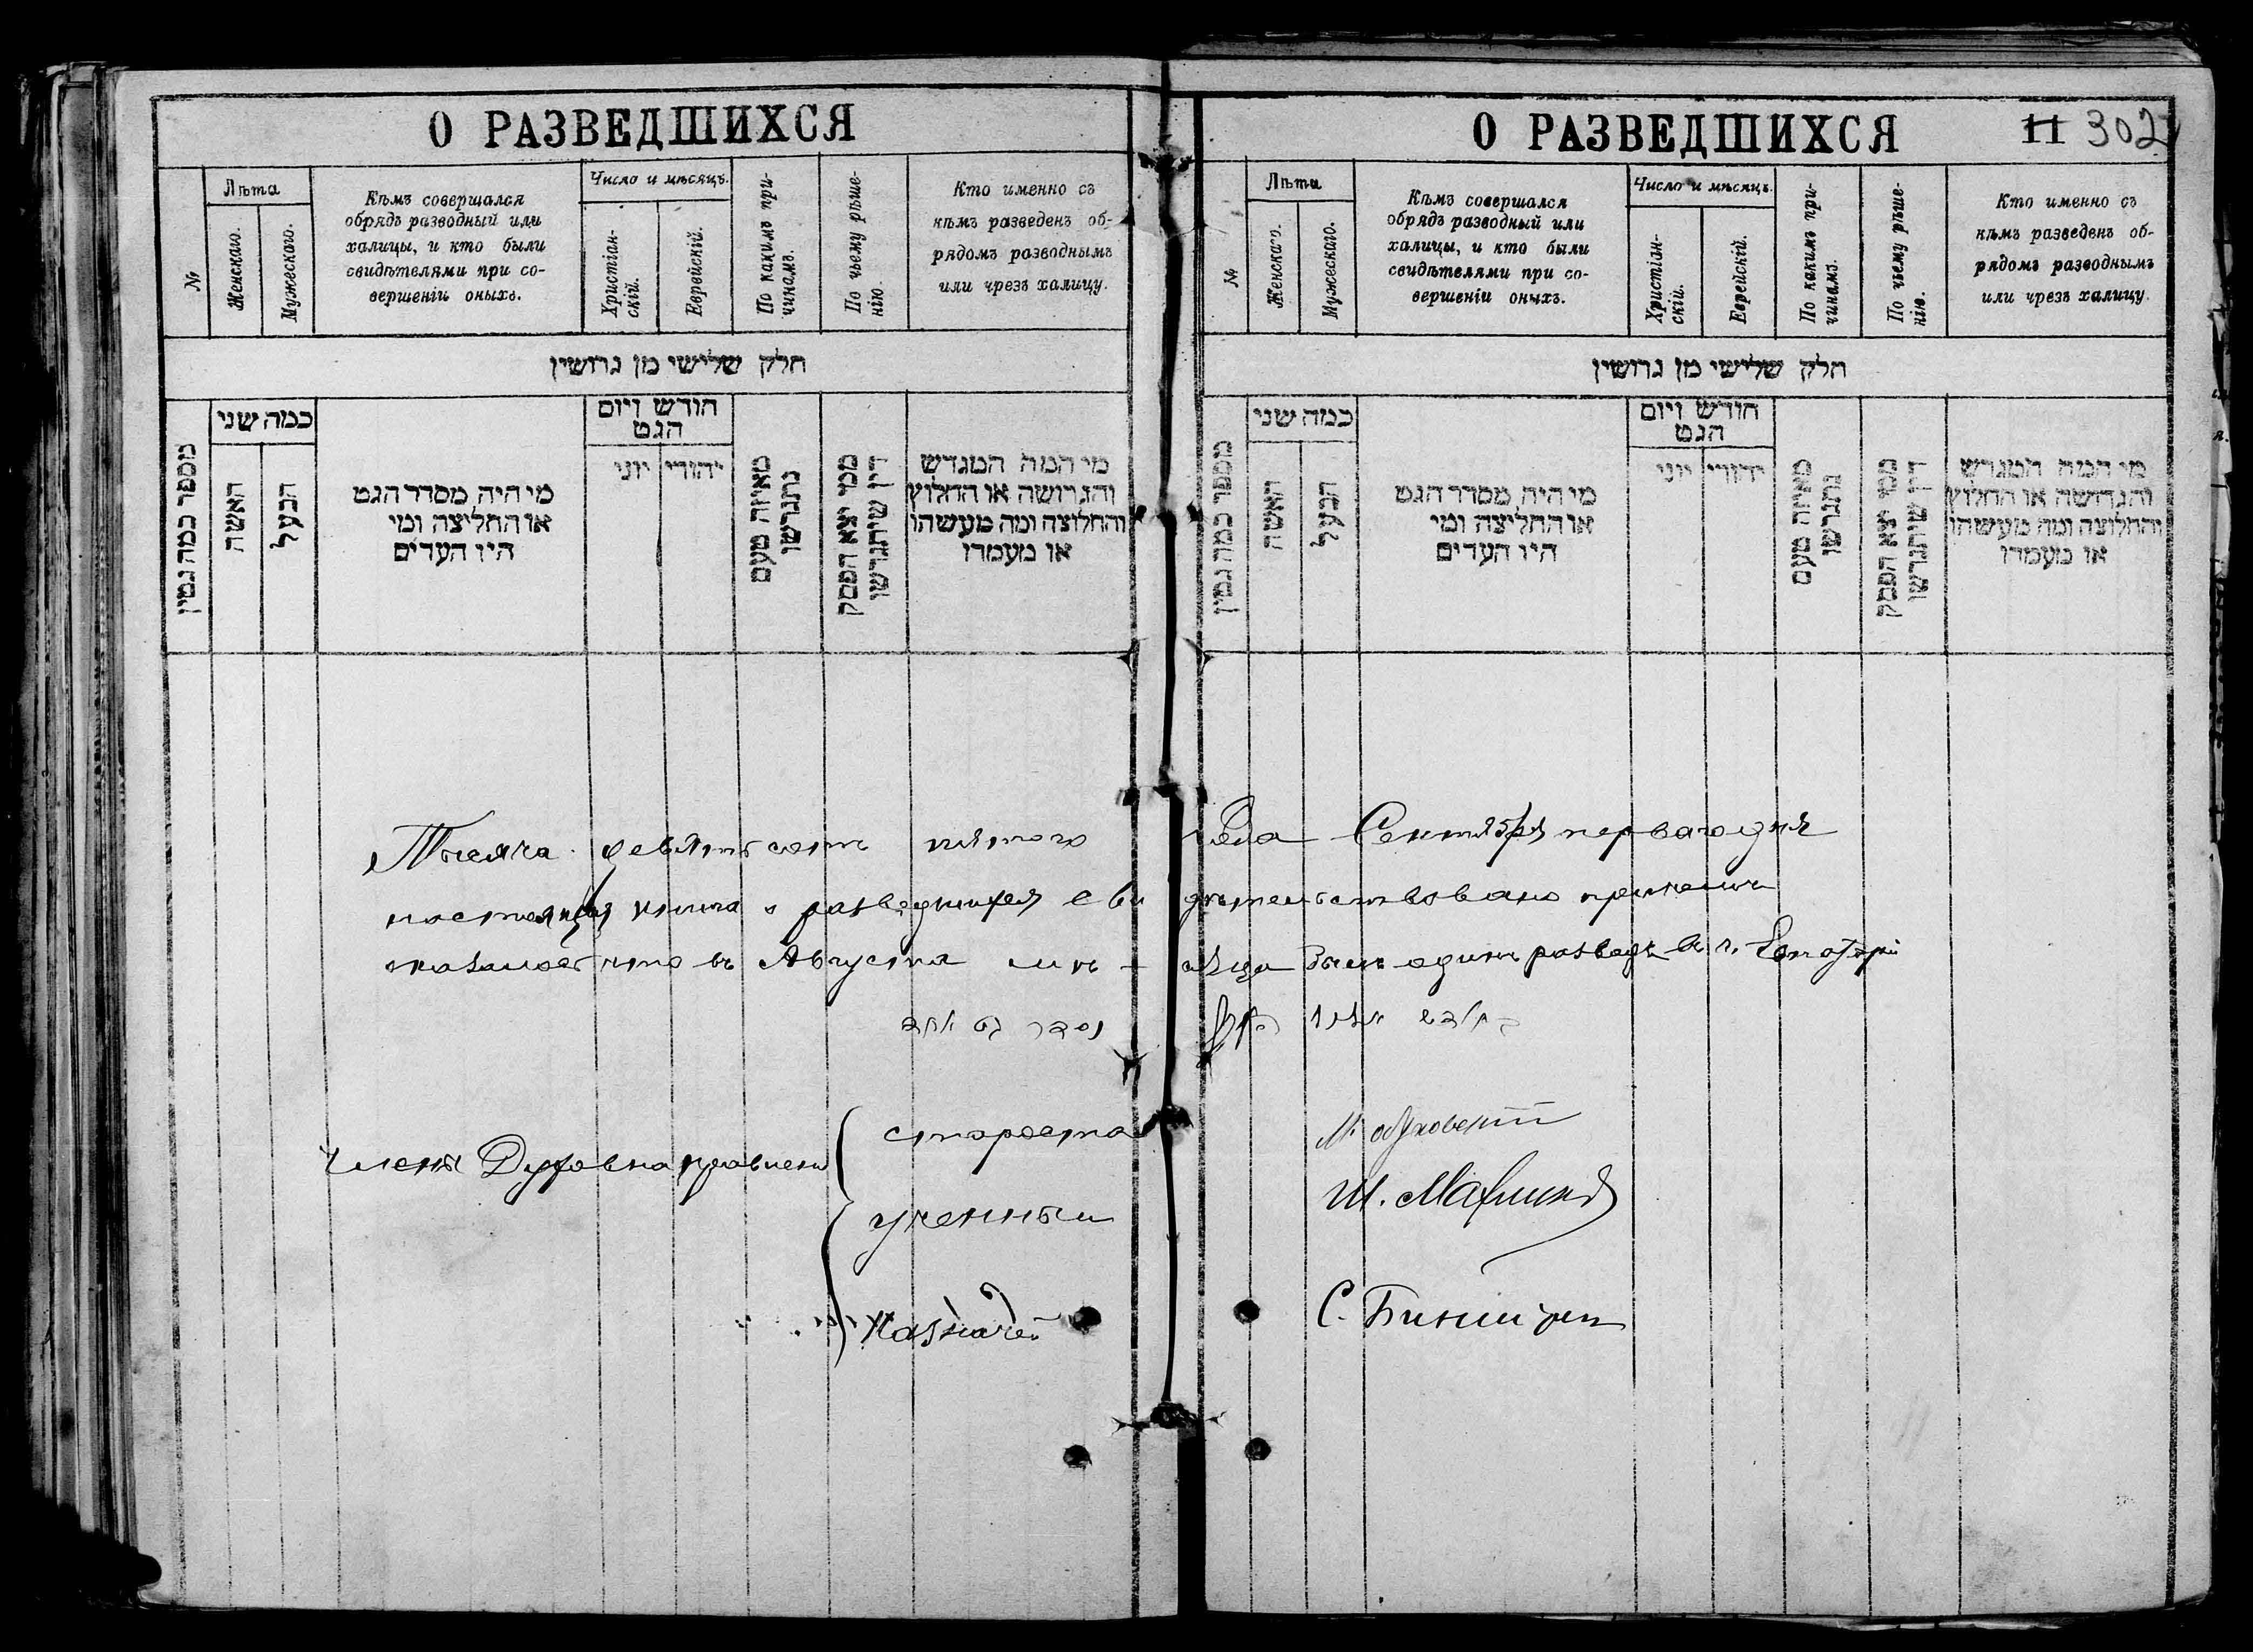 О РАЗВЕДШИХСЯ
№
Лѣта
Женскаго.
Мужескаго.
Кѣмъ совершался
обрядъ разводный или
халицы, и кто были
свидѣтелями при со-
вершеніи оныхъ.
Число и мѣсяцъ.
Христіан-
скій.
Еврейскій.
По какимъ при-
чинамъ.
По чьему рѣше-
нію.
Кто именно съ
кѣмъ разведенъ об-
рядомъ разводнымъ
или чрезъ халицу.
חלק שלישי מן גרושין
מספר כמה גטין
כמה שני
האשה
הבעל
מי היה מסדר הגט
או החליצה ומי
היו העדים
חודש ויום
הגט
יהודי יוני
מאיזה טעם
נתגרשו
ממי יצא הפסק
דין שיתגרשו
מי המה המגרש
והגרושה או החלוץ
והחלוצה ומה מעשהו
או מעמדו
О РАЗВЕДШИХСЯ
11 302
№
Лѣта
Женскаго.
Мужескаго.
Кѣмъ совершался
обрядъ разводный или
халицы, и кто были
свидѣтелями при со-
вершеніи оныхъ.
Число и мѣсяцъ.
Христіан-
скій.
Еврейскій.
По какимъ при-
чинамъ.
По чьему рѣше-
нію.
Кто именно съ
кѣмъ разведенъ об-
рядомъ разводнымъ
или чрезъ халицу.
חלק שלישי מן גרושין
מספר כמה גטין
כמה שני
האשה
הבעל
מי היה מסדר הגט
או החליצה ומי
היו העדים
חודש ויום
הגט
יהודי יוני
מאיזה טעם
נתגרשו
ממי יצא הפסק
דין שיתגרשו
מי המה המגרש
והגרושה או החלוץ
והחלוצה ומה מעשהו
או מעמדו
Тысяча девятьсотъ пятого года Сентября перваго дня
настоящая книга о разведшихся свидѣтельствовано причемъ
оказалось что въ Августа мѣсяца былъ одинъ разводъ въ г.
נסדר גט אחד
Члены Духовна правлен
староста
ученный
Казначей
Ш.
С.